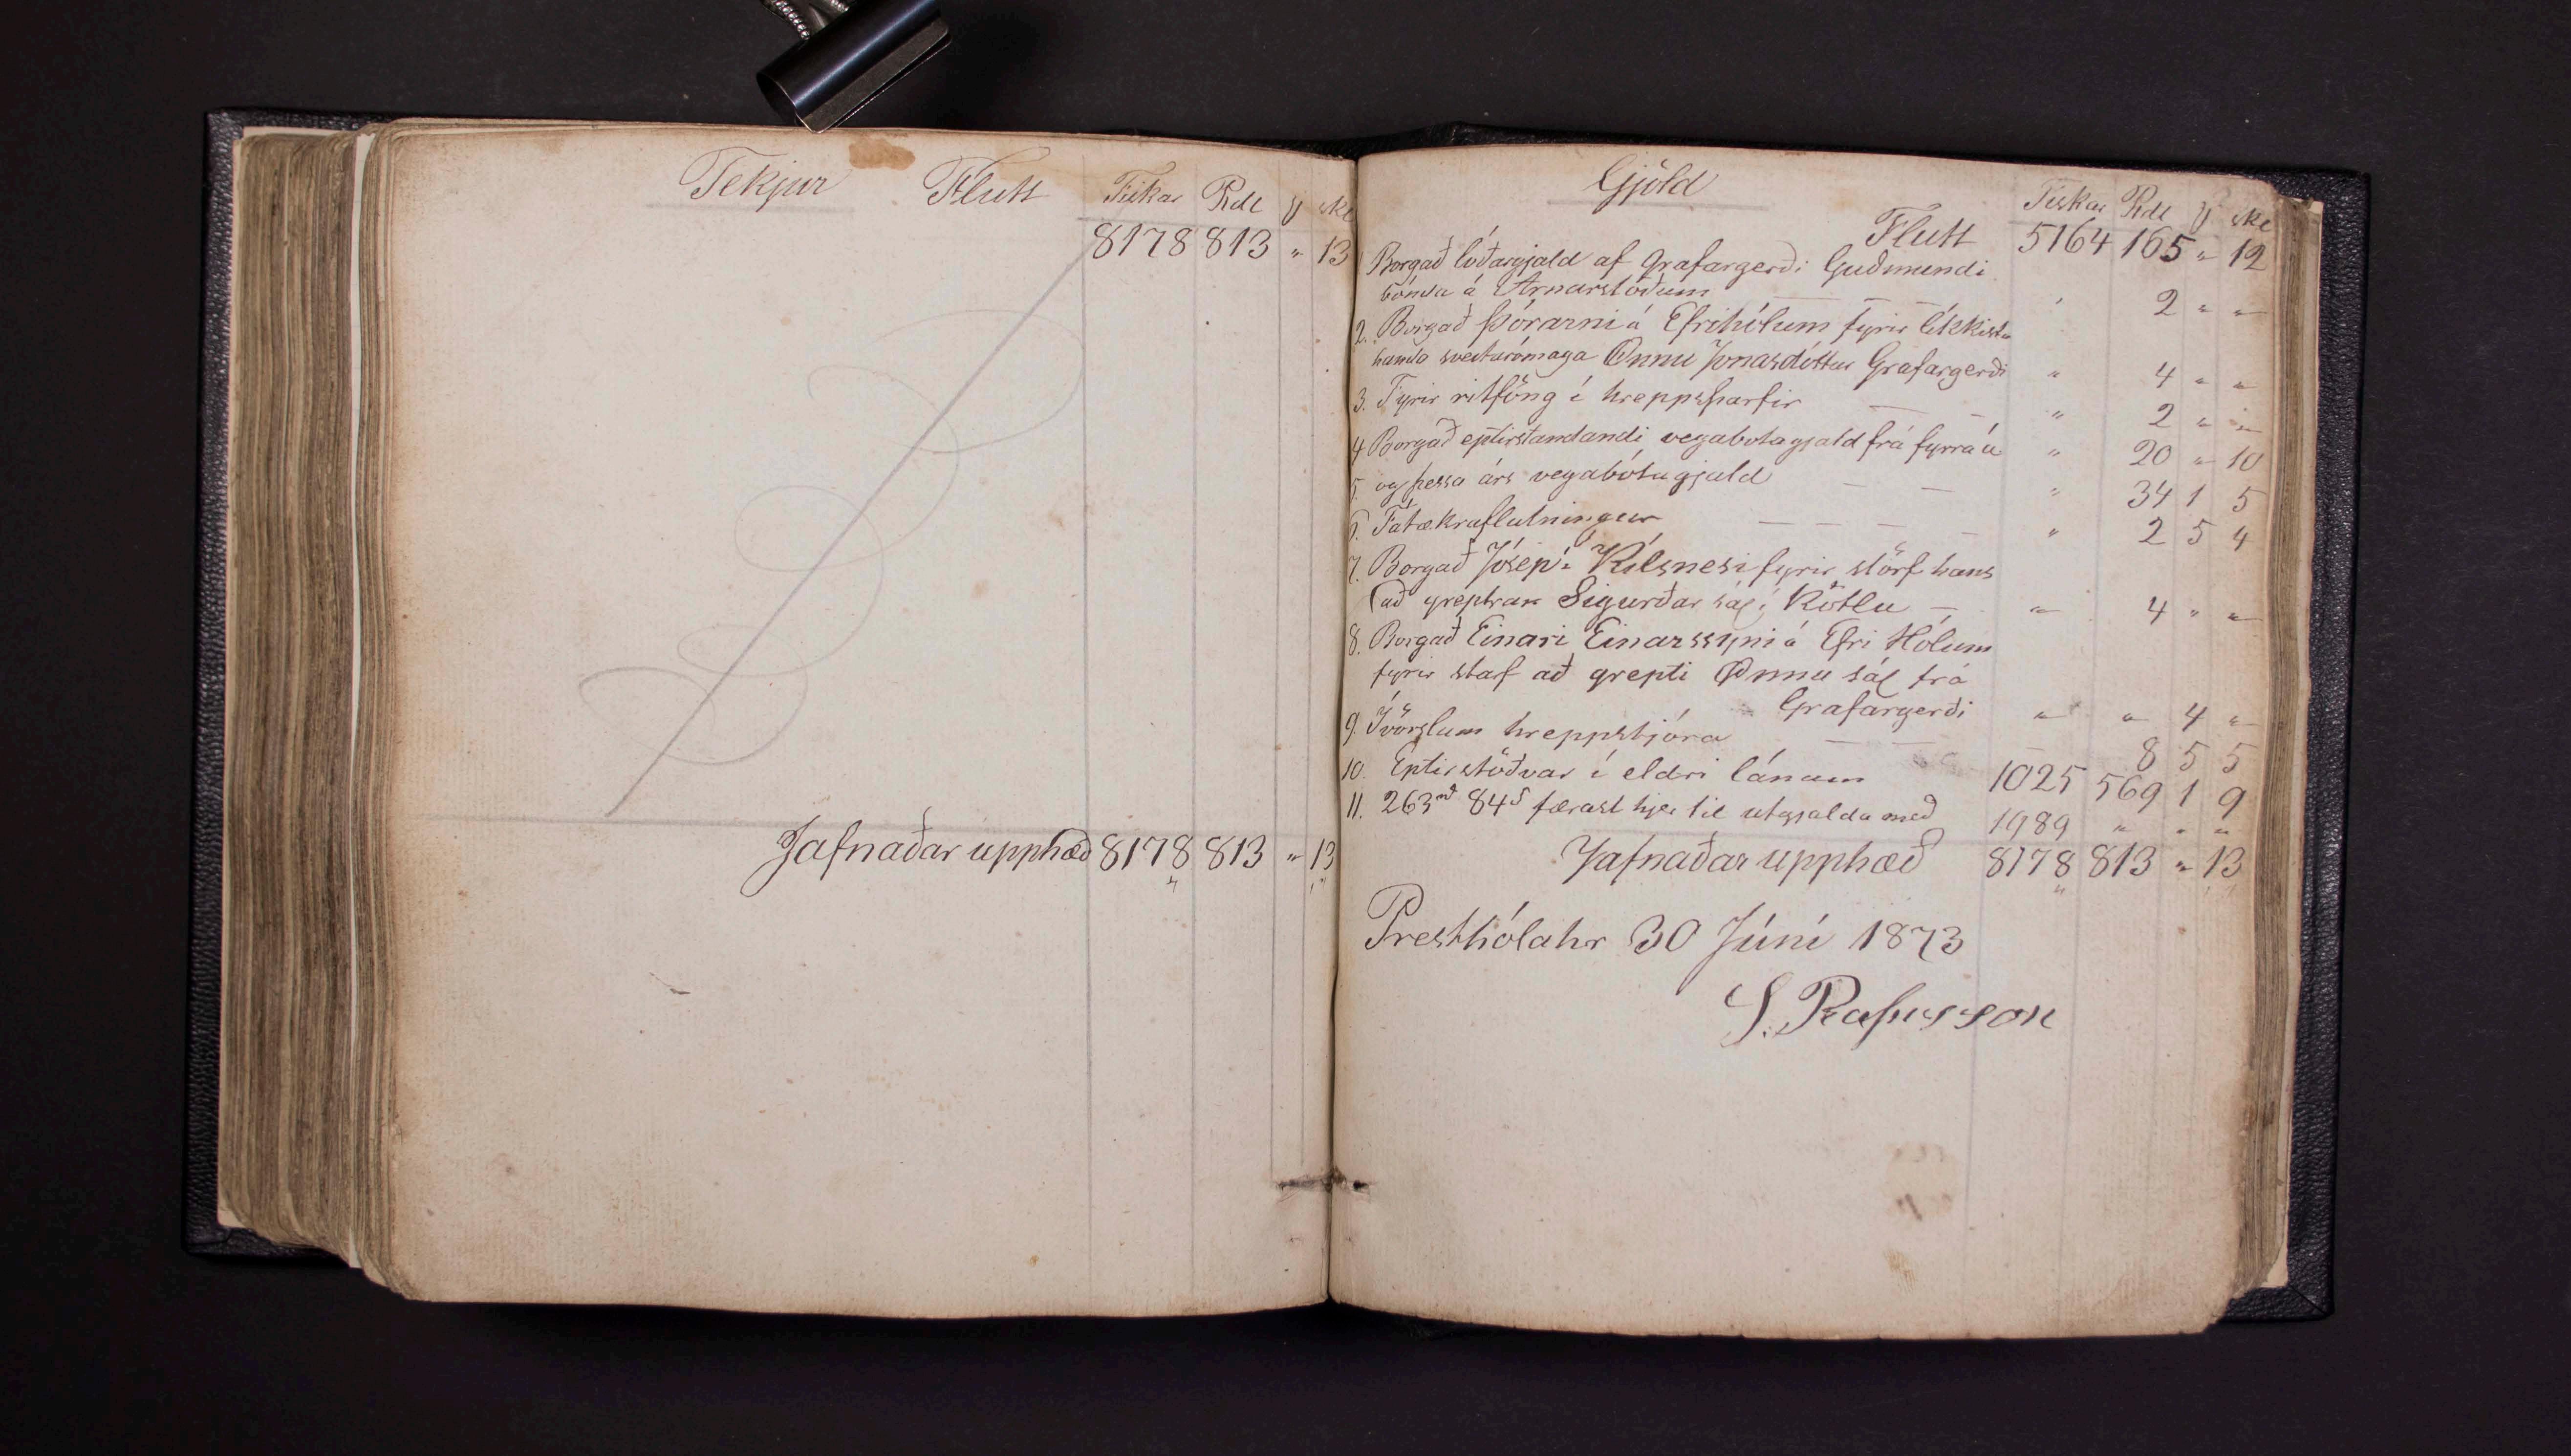 Tekjur Flutt Fiskar Rdl # skl
8178 813 " 13
Jafnaðar upphæð 8178 813 " 13
Gjöld
Fiskar Rdl # skl
Flutt 5164 165 " 12
1 Borgað lóðargjald af Grafargerði Guðmundi
bónda á Arnarstöðum — — ' 2 " "
2. Borgað Þórarni á Efrihólum fyrir líkkistu
handa sveitarómaga Önnu Jónasdóttur Grafargerði " 4 " "
3. Fyrir ritföng í hreppsþarfir — — " 2 " "
4 Borgað eptirstandandi vegabotagjald frá fyrra á " 20 " 10
5. og þessa árs vegabótagjald — — " 34 1 5
6. Fátækraflutningur — — — " 2 5 4
7. Borgað Jósep í Kílsnesi fyrir störf hans
að greptran Sigurðar sál í Kötlu — " 4 " "
8. Borgað Einari Einarssyni á Efri Hólum
fyrir starf að grepti Önnu sál frá
Grafargerði " " 4 "
9. Ívörslum hreppstjóra — — — 8 5 5
10. Eptirstöðvar í eldri lánum 1025 569 1 9
11. 263rd 84s færast hjer til utgjalda með 1989 " " "
Jafnaðar upphæð 8178 813 " 13
Presthólahr 30 Júní 1873
S. Rafnsson